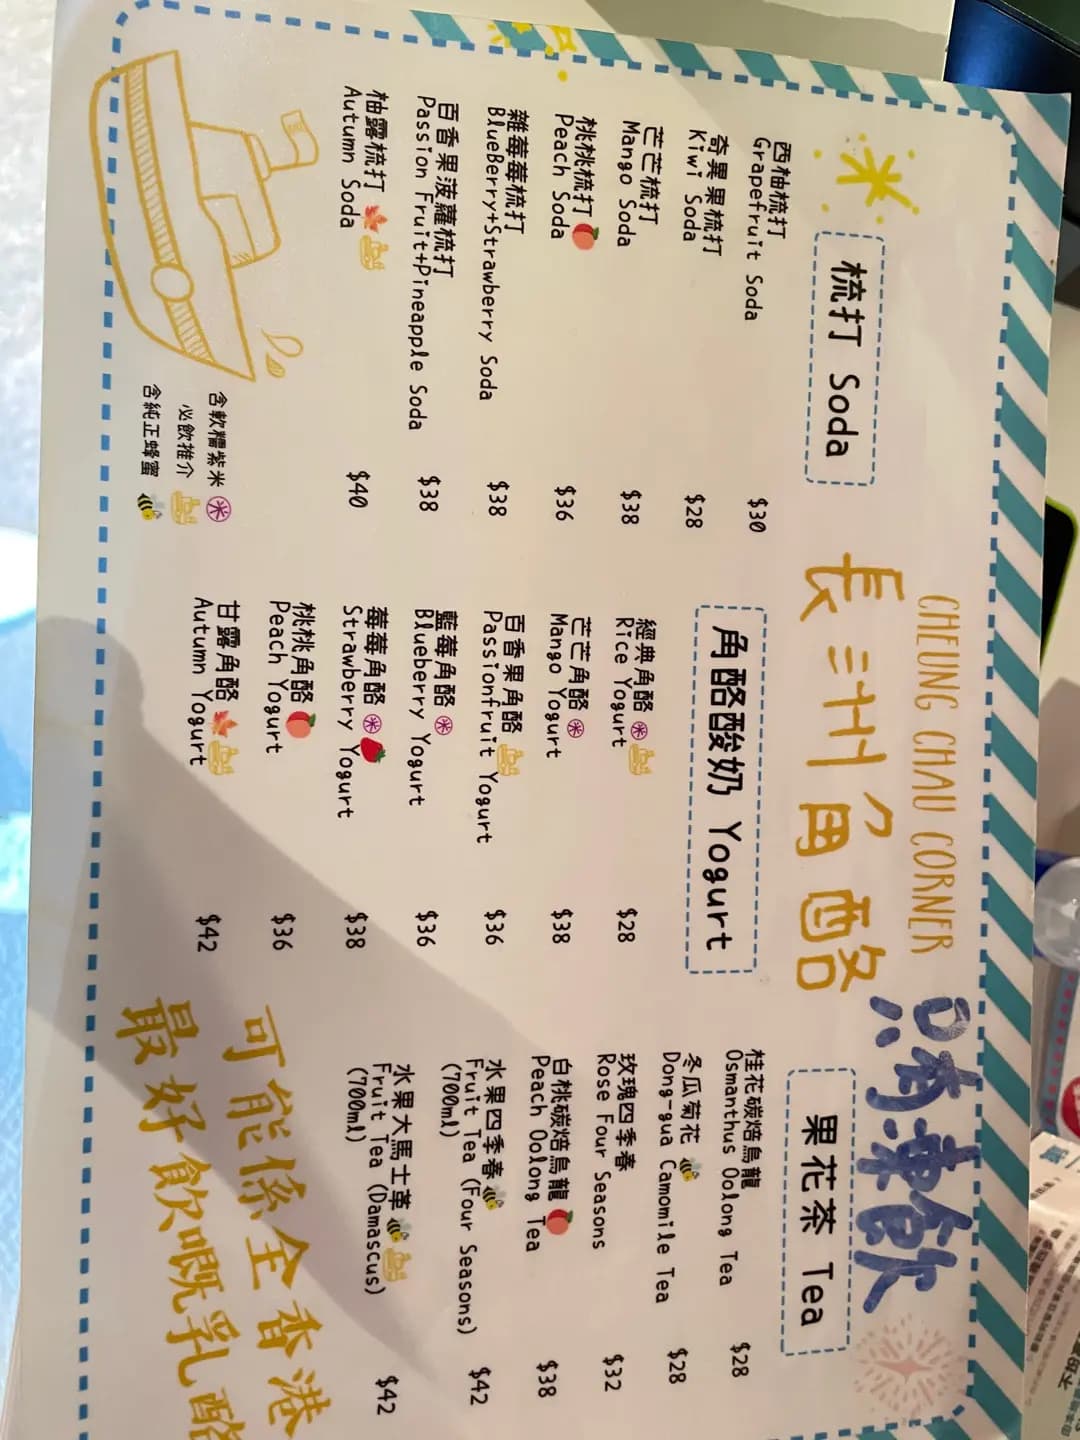 CHEUNG CHAU CORNER
長洲角酪
只有凍飲
梳打 Soda
西柚梳打
Grapefruit Soda $30
奇異果梳打
Kiwi Soda $28
芒芒梳打
Mango Soda $38
桃桃梳打
Peach Soda $36
雜莓莓梳打
BlueBerry+Strawberry Soda $38
百香果菠蘿梳打
Passion Fruit+Pineapple Soda $38
柚露梳打
Autumn Soda $40
含軟糯紫米
必飲推介
含純正蜂蜜
角酪酸奶 Yogurt
經典角酪
Rice Yogurt $28
芒芒角酪
Mango Yogurt $38
百香果角酪
Passionfruit Yogurt $36
藍莓角酪
Blueberry Yogurt $36
莓莓角酪
Strawberry Yogurt $38
桃桃角酪
Peach Yogurt $36
甘露角酪
Autumn Yogurt $42
果花茶 Tea
桂花碳焙烏龍
Osmanthus Oolong Tea $28
冬瓜菊花
Dong-gua Camomile Tea $28
玫瑰四季春
Rose Four Seasons $32
白桃碳焙烏龍
Peach Oolong Tea $38
水果四季春
Fruit Tea (Four Seasons)
(700ml) $42
水果大馬士革
Fruit Tea (Damascus)
(700ml) $42
可能係全香港
最好飲嘅乳酪